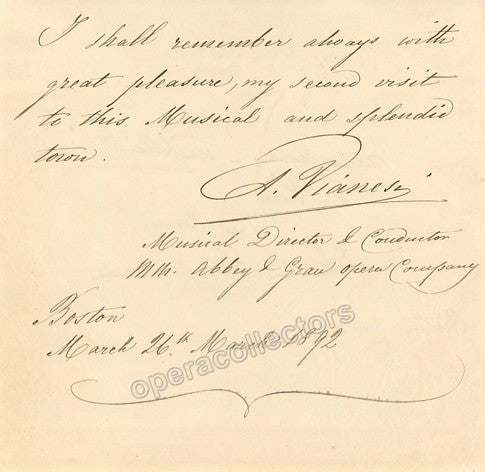 I shall remember always with
great pleasure, my second visit
to this Musical and splendid
town.
A. Vianesi
Musical Director & Conductor
MM. Abbey & Grau opera Company
Boston
March 26.th March 1892
operacollectors